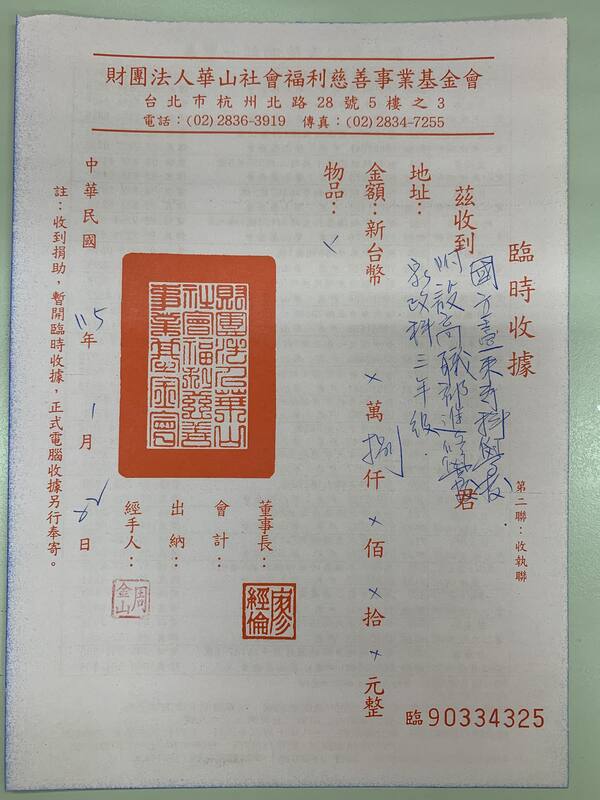 財團法人華山社會福利慈善事業基金會
台北市杭州北路28號5樓之3
電話：(02)2836-3919 傳真：(02)2834-7255
臨時收據
第二聯：收執聯
茲收到 國立臺東專科學校
附設高職部進修學校
家政科三年級. 君
地址：
金額：新台幣 × 萬 捌 仟 × 佰 × 拾 × 元整
物品：
董事長：
廖經倫
會計：
出納：
經手人：
周金山
財團法人華山社會福利慈善事業基金會
中華民國 115 年 1 月 日
註：收到捐助，暫開臨時收據，正式電腦收據另行奉寄。
臨 90334325